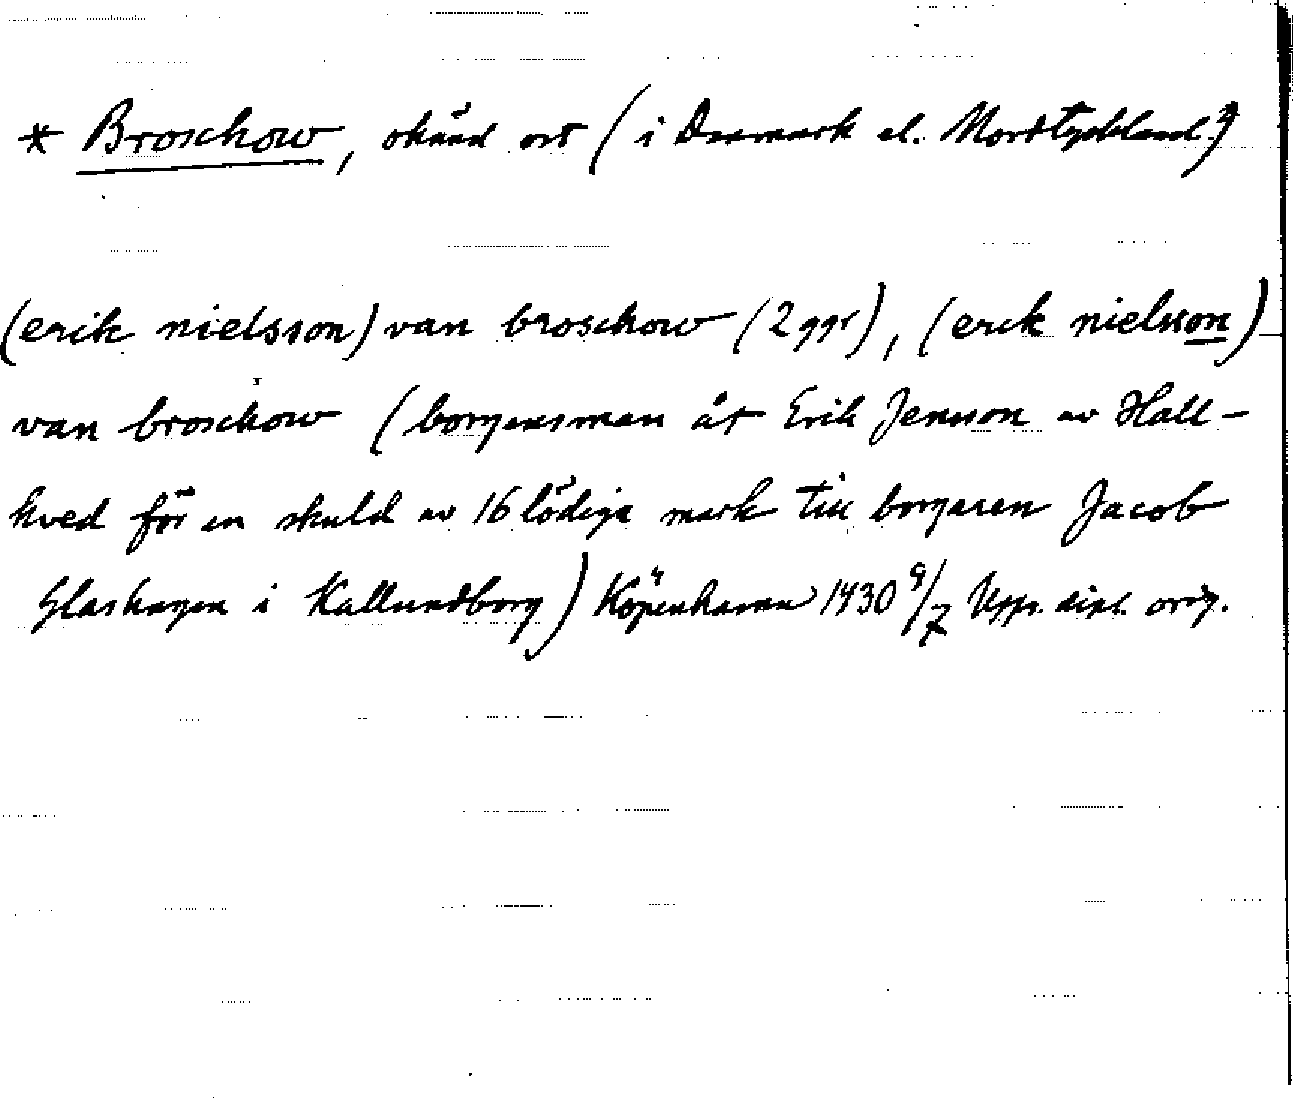 * Broschow, okänd ort (i Danmark el. Nordtyskland?)
(erik nielsson) van broschow (2 ggr), (erik nielsson)
van broschow (borgensman åt Erik Jensson av Hall-
kved för en skuld av 16 lödiga mark till borgaren Jacob
Glashagen i Kallundborg) Köpenhamn 1430 9/7 Upps. dipl. orig.